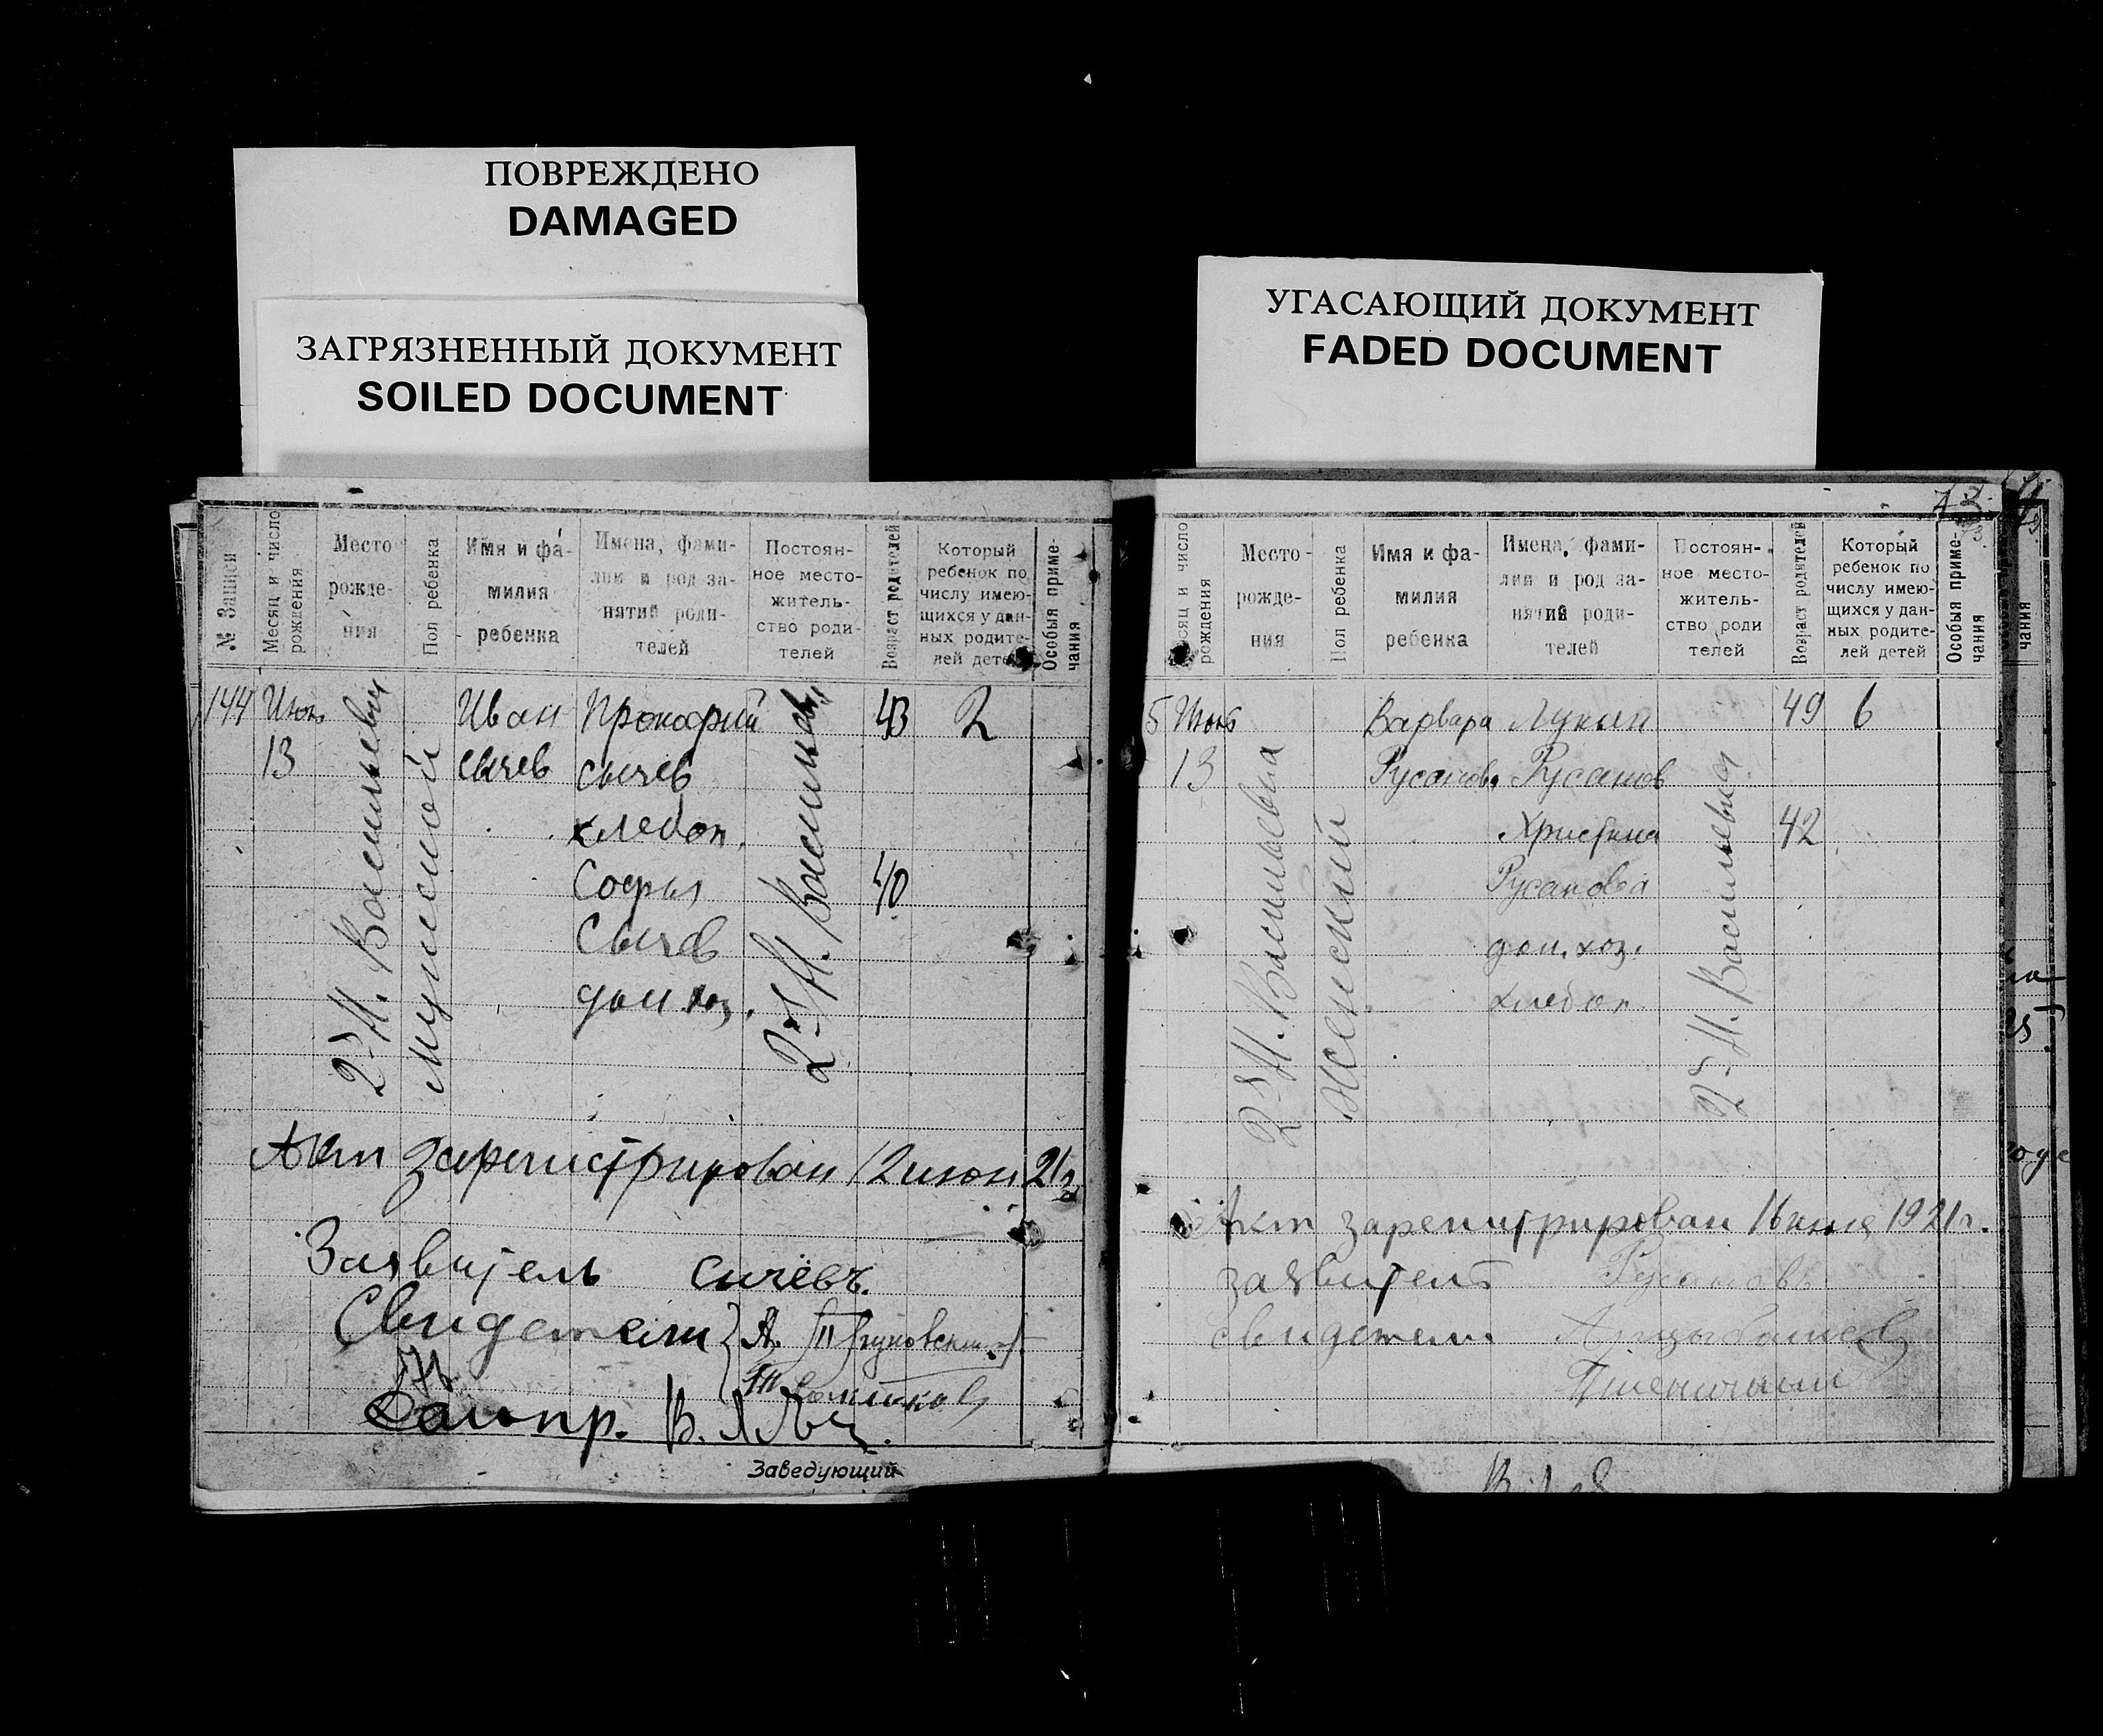 ПОВРЕЖДЕНО
DAMAGED
ЗАГРЯЗНЕННЫЙ ДОКУМЕНТ
SOILED DOCUMENT
УГАСАЮЩИЙ ДОКУМЕНТ
FADED DOCUMENT
№ Записи
Месяц и число рождения
Место рожде-
ния
Пол ребенка
Имя и фа-
милия
ребенка
Имена, фами-
лии и род за-
нятий роди-
телей
Постоян-
ное место-
житель-
ство роди-
телей
Возраст родителей
Который
ребенок по
числу имею-
щихся у дан-
ных родите-
лей детей
Особыя приме-
чания
144 Июн Иван Прокофий 43 2
13 Сычев Сычев
хлебоп.
Софья 40
Сычев
дом. хоз.
Мужской
Акт зарегистрирован 12 июн 21 г
Заявитель Сичёвъ.
Свидетели
Заведующий
рождения
Место-
рожде-
ния
Пол ребенка
Имя и фа-
милия
ребенка
Имена, фами-
лии и род за-
нятий роди-
телей
Постоян-
ное место-
житель-
ство роди
телей
Возраст родителей
Который
ребенок по
числу имею-
щихся у дан-
ных родите-
лей детей
Особыя приме-
чания
5 Июнь Варвара Лукин 49 6
13 Русанова Русанов
Христина 42
Русанова
дом. хоз.
хлебоп
2й Н. Васильевка
Женский
2й Н. Васильевка
Акт зарегистрирован 16 июня 1921 г.
заявитель Русановъ
свидетели